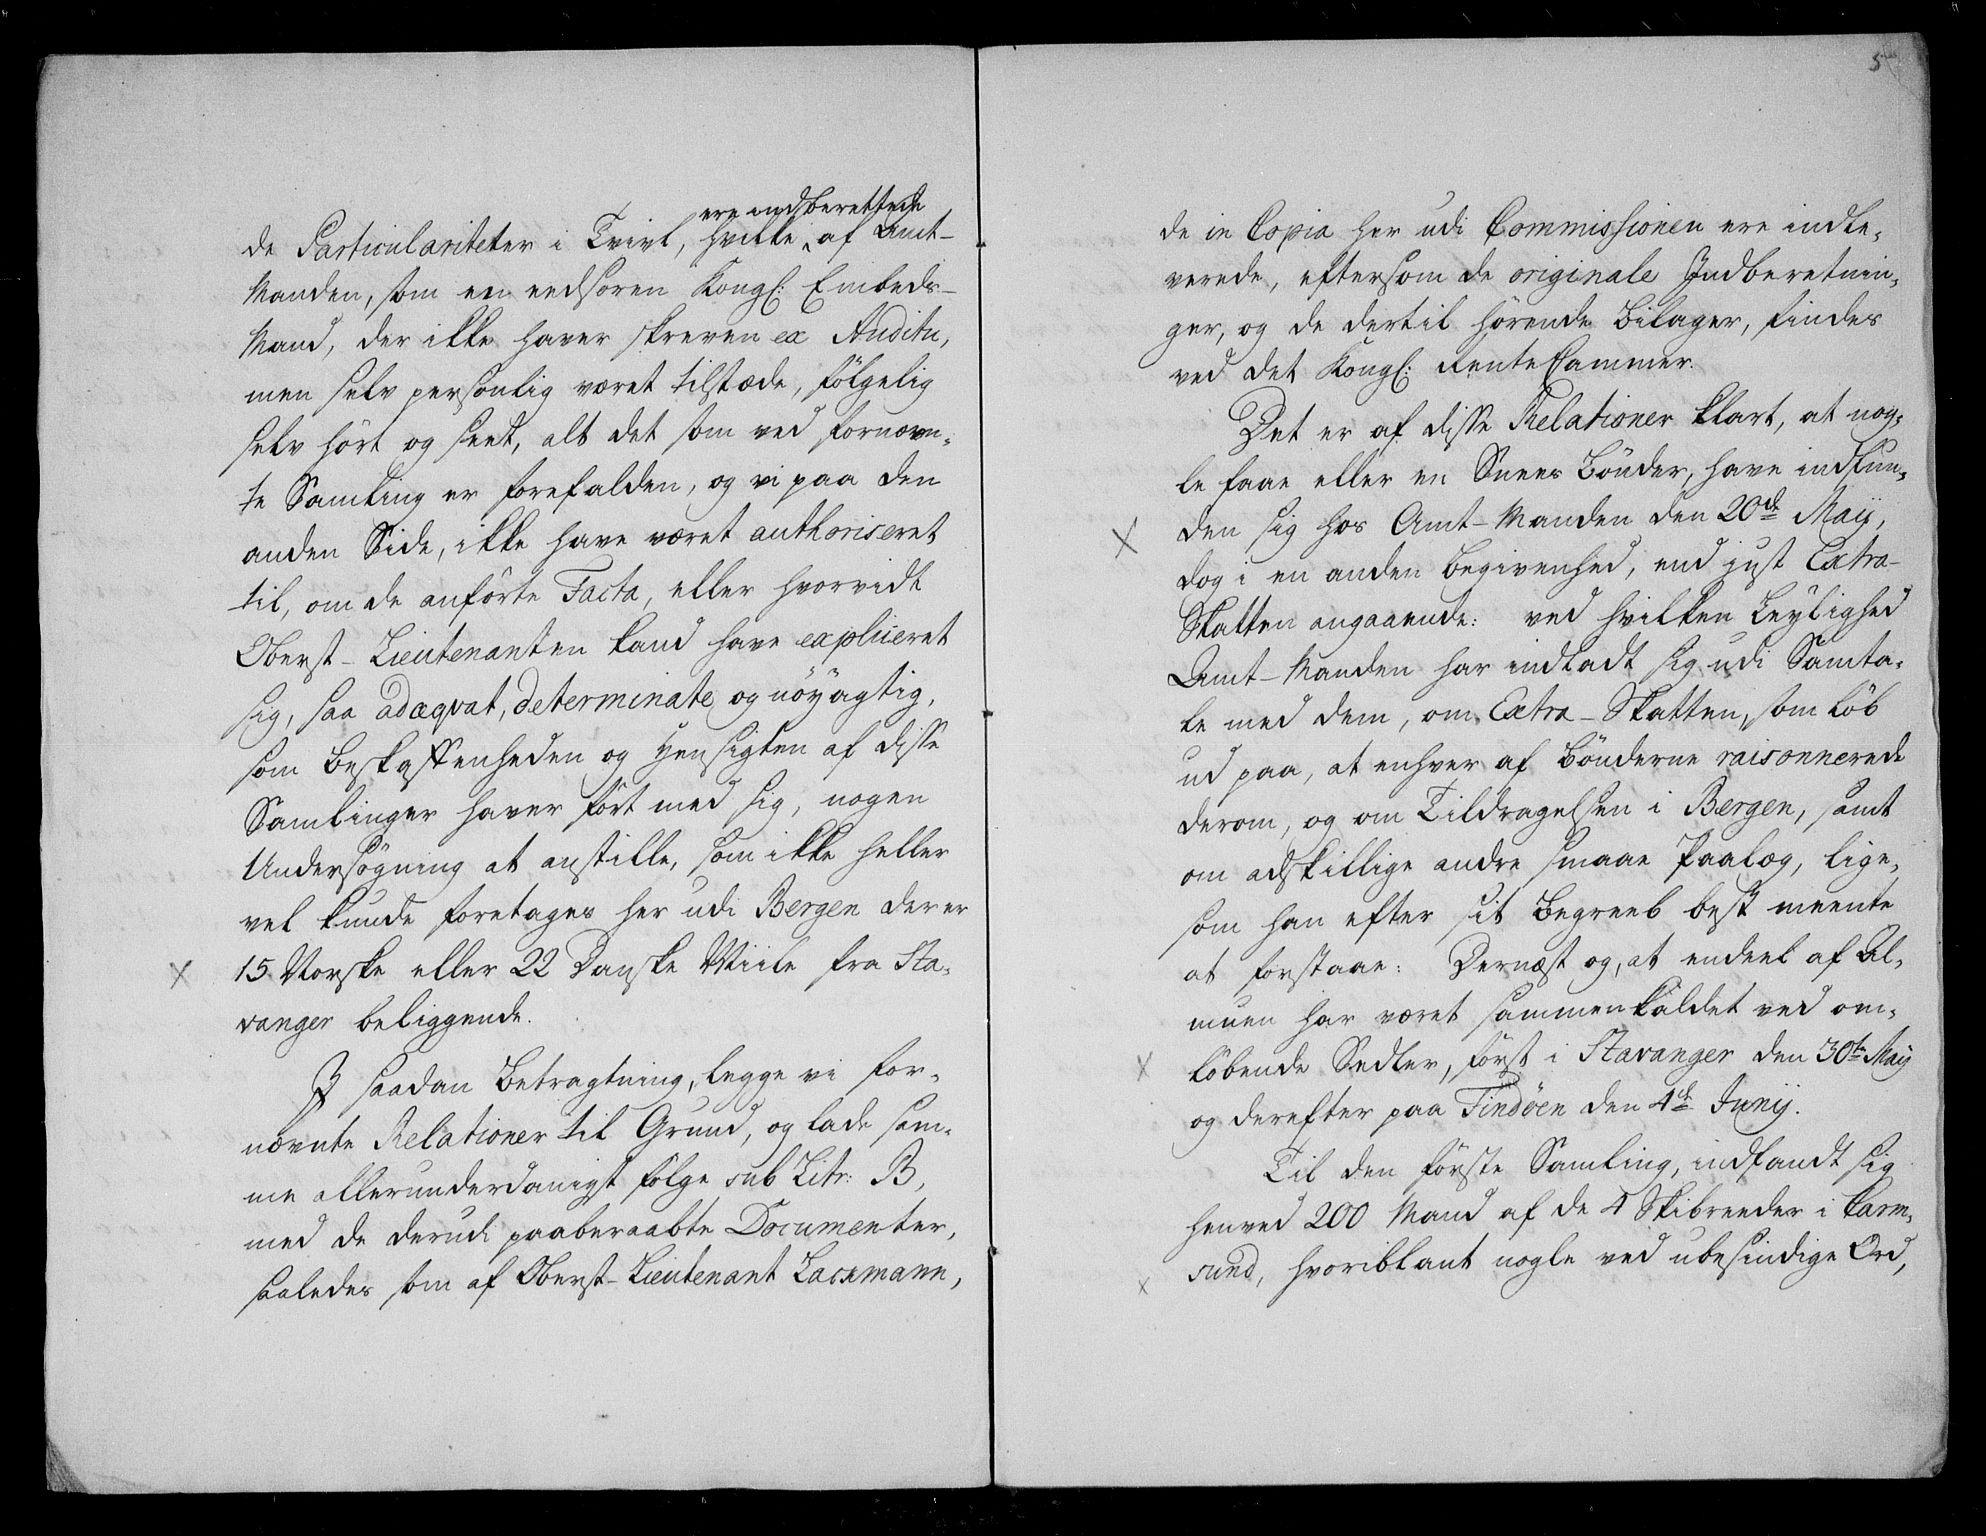 ere indberettede
de Particulariteter i Tvivl, hvilke af Amt-
Manden, som en eedsoren Kongl: Embeds-
Mand, der ikke haver skreven ex Auditu,
men selv personlig været tilstæde, fölgelig
selv hört og seet, alt det som ved fornævn-
te Samling er forefalden, og vi paa den
anden Side, ikke have været authoriseret
til, om de anförte Facta, eller hvorvidt
Oberst-Lieutenanten kand have expliceret
sig, saa adæqvat, determinate og nöyagtig,
som Beskaffenheden og Hensigten af disse
Samlinger haver fört med sig, nogen
Undersögning at anstille, som ikke heller
vel kunde foretages her udi Bergen der er
15 Norske eller 22 Danske Miile fra Sta-
vanger beliggende.
I saadan Betragtning, legge vi for-
nævnte Relationer til Grund, og lade sam-
me allerunderdanigst fölge sub Litr: B,
med de derudi paaberaabte Documenter,
saaledes som af Oberst-Lieutenant Lacxmann,
5
de in Copia her udi Commissionen ere indle-
verede, eftersom de originale Indberetnin-
ger, og de dertil hörende Bilager, findes
ved det Kongl: Rente Cammer.
Det er af disse Relationer klart, at nog-
le faae eller en Snees Bönder, have indfun-
den sig hos Amt-Manden den 20de Maij,
dog i en anden Begivenhed, end just Extra-
Skatten angaaende: ved hvilken Leylighed
Amt-Manden har indladt sig udi Samta-
le med dem, om Extra-Skatten, som löb
ud paa, at enhver af Bönderne raisonnerede
derom, og om Tildragelsen i Bergen, samt
om adskillige andre smaae Paalæg, lige-
som han efter sit Begreeb best meente
at forstaae: Dernæst og, at endeel af Al-
muen har været sammenkaldet ved om-
löbende Sedler, först i Stavanger den 30te Maij
og derefter paa Findöen den 4de Junij.
Til den förste Samling, indfandt sig
henved 200 Mand af de 4 Skibreeder i Karm-
sund, hvoriblant nogle ved ubesindige Ord,